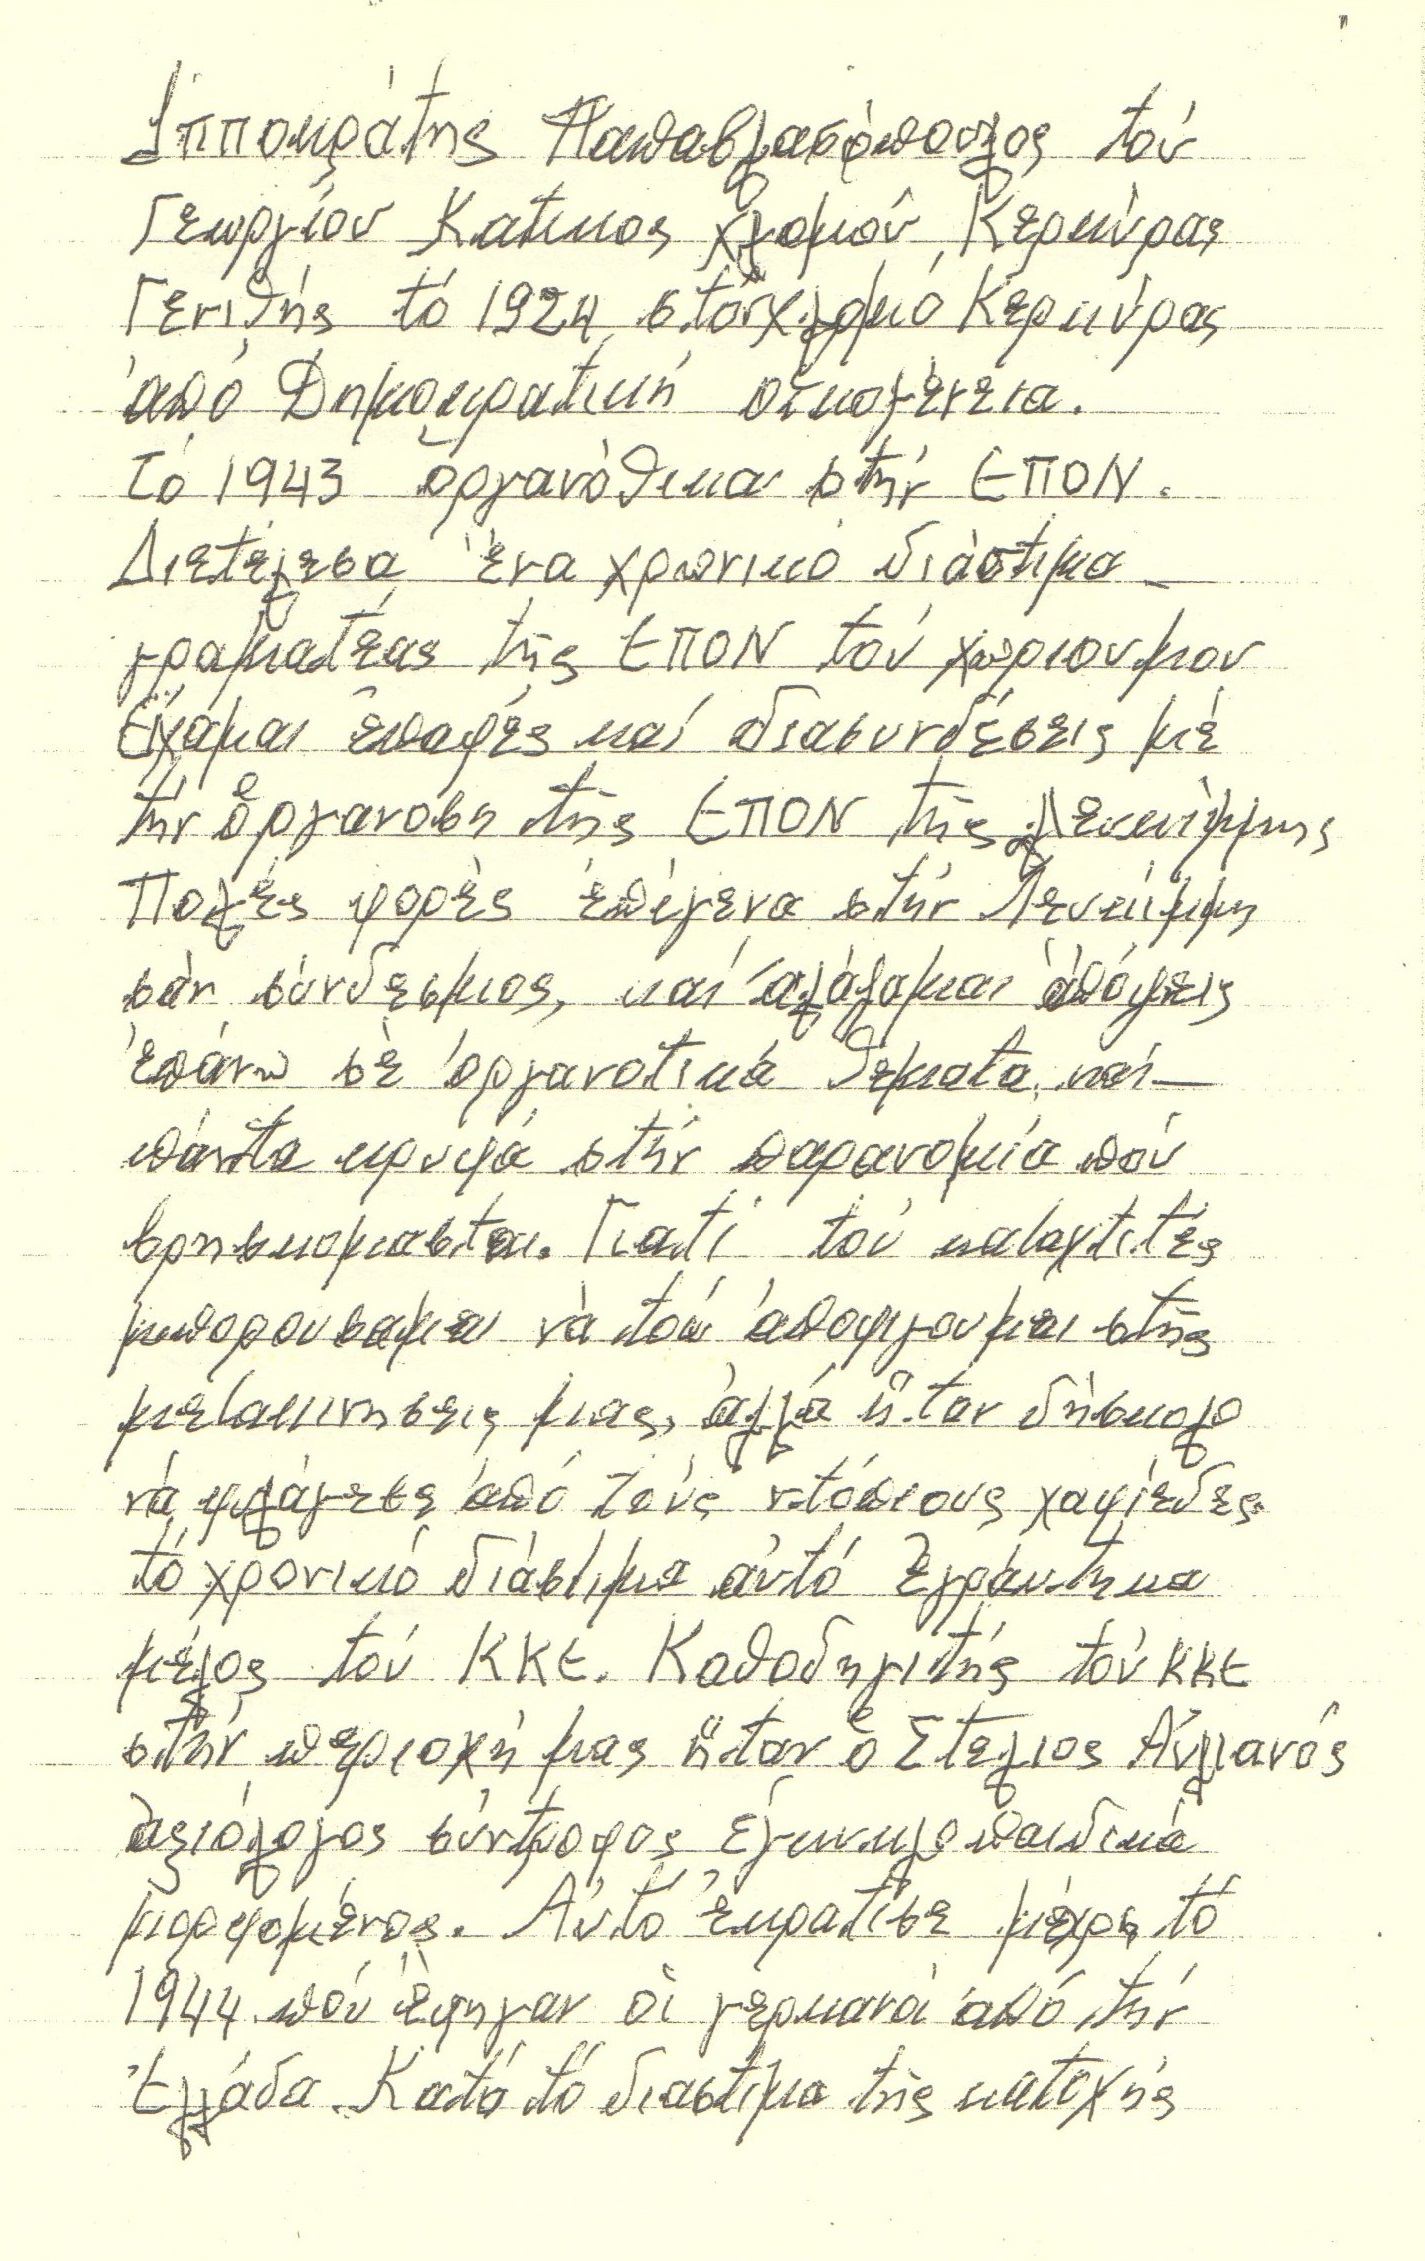 Ἱπποκράτης Παπαβλασόπουλος τοὺ
Γεωργίου Κατικος χλομοῦ Κερκύρας
Γενιθής τό 1924 στόνχλομό Κερκύρας
ἀπό Δημοκρατική οἰκογένεια.
τό 1943 ὀργανόθικα στήν ΕΠΟΝ.
Διετέλεσα ἕνα χρωνικό διάστιμα
γραματέας τῆς ΕΠΟΝ τοῦ χωριουμου
Εἴχαμαι ἐπαφές καί διασυνδέσεις μέ
τήν ὀργανοση τῆς ΕΠΟΝ τῆς Λευκίμμης
Πολές φορές ἐπίγενα στήν Λευκίμμη
σάν σύνδεσμος, καί ἀλάζαμαι ἀπόψεις
ἐπάνω σέ ὀργανοτικά θεματα, καί
πάντα κρυφά στήν παρανομία πού
βρησκομασται. Γιατί τού καταχτιτές
μπορουσαμαι νά τού ἀποφιγουμαι στῆς
μετακινησεις μας, ἀλλά ἦταν δήσκολο
νά φιλάγεσε ἀπό τούς ντόπιους χαφιέδες.
τό χρονικό διάστιμα αὐτό ἐγράυτηκα
μέλος τοῦ ΚΚΕ. Καθοδηγιτής τοῦ ΚΚΕ
στήν περιοχή μας ἦταν ὁ Στελιος Αὐλιανός
ἀξιόλογος σύντροφος ἐγκυκλοπαιδικά
μορφομένος. Αὐτό ἐκρατισε μέχρι τό
1944 πού ἔφηγαν οἱ γερμανοί ἀπό τήν
Ἑλλάδα. Κατά τό διαστιμα τῆς κατοχῆς